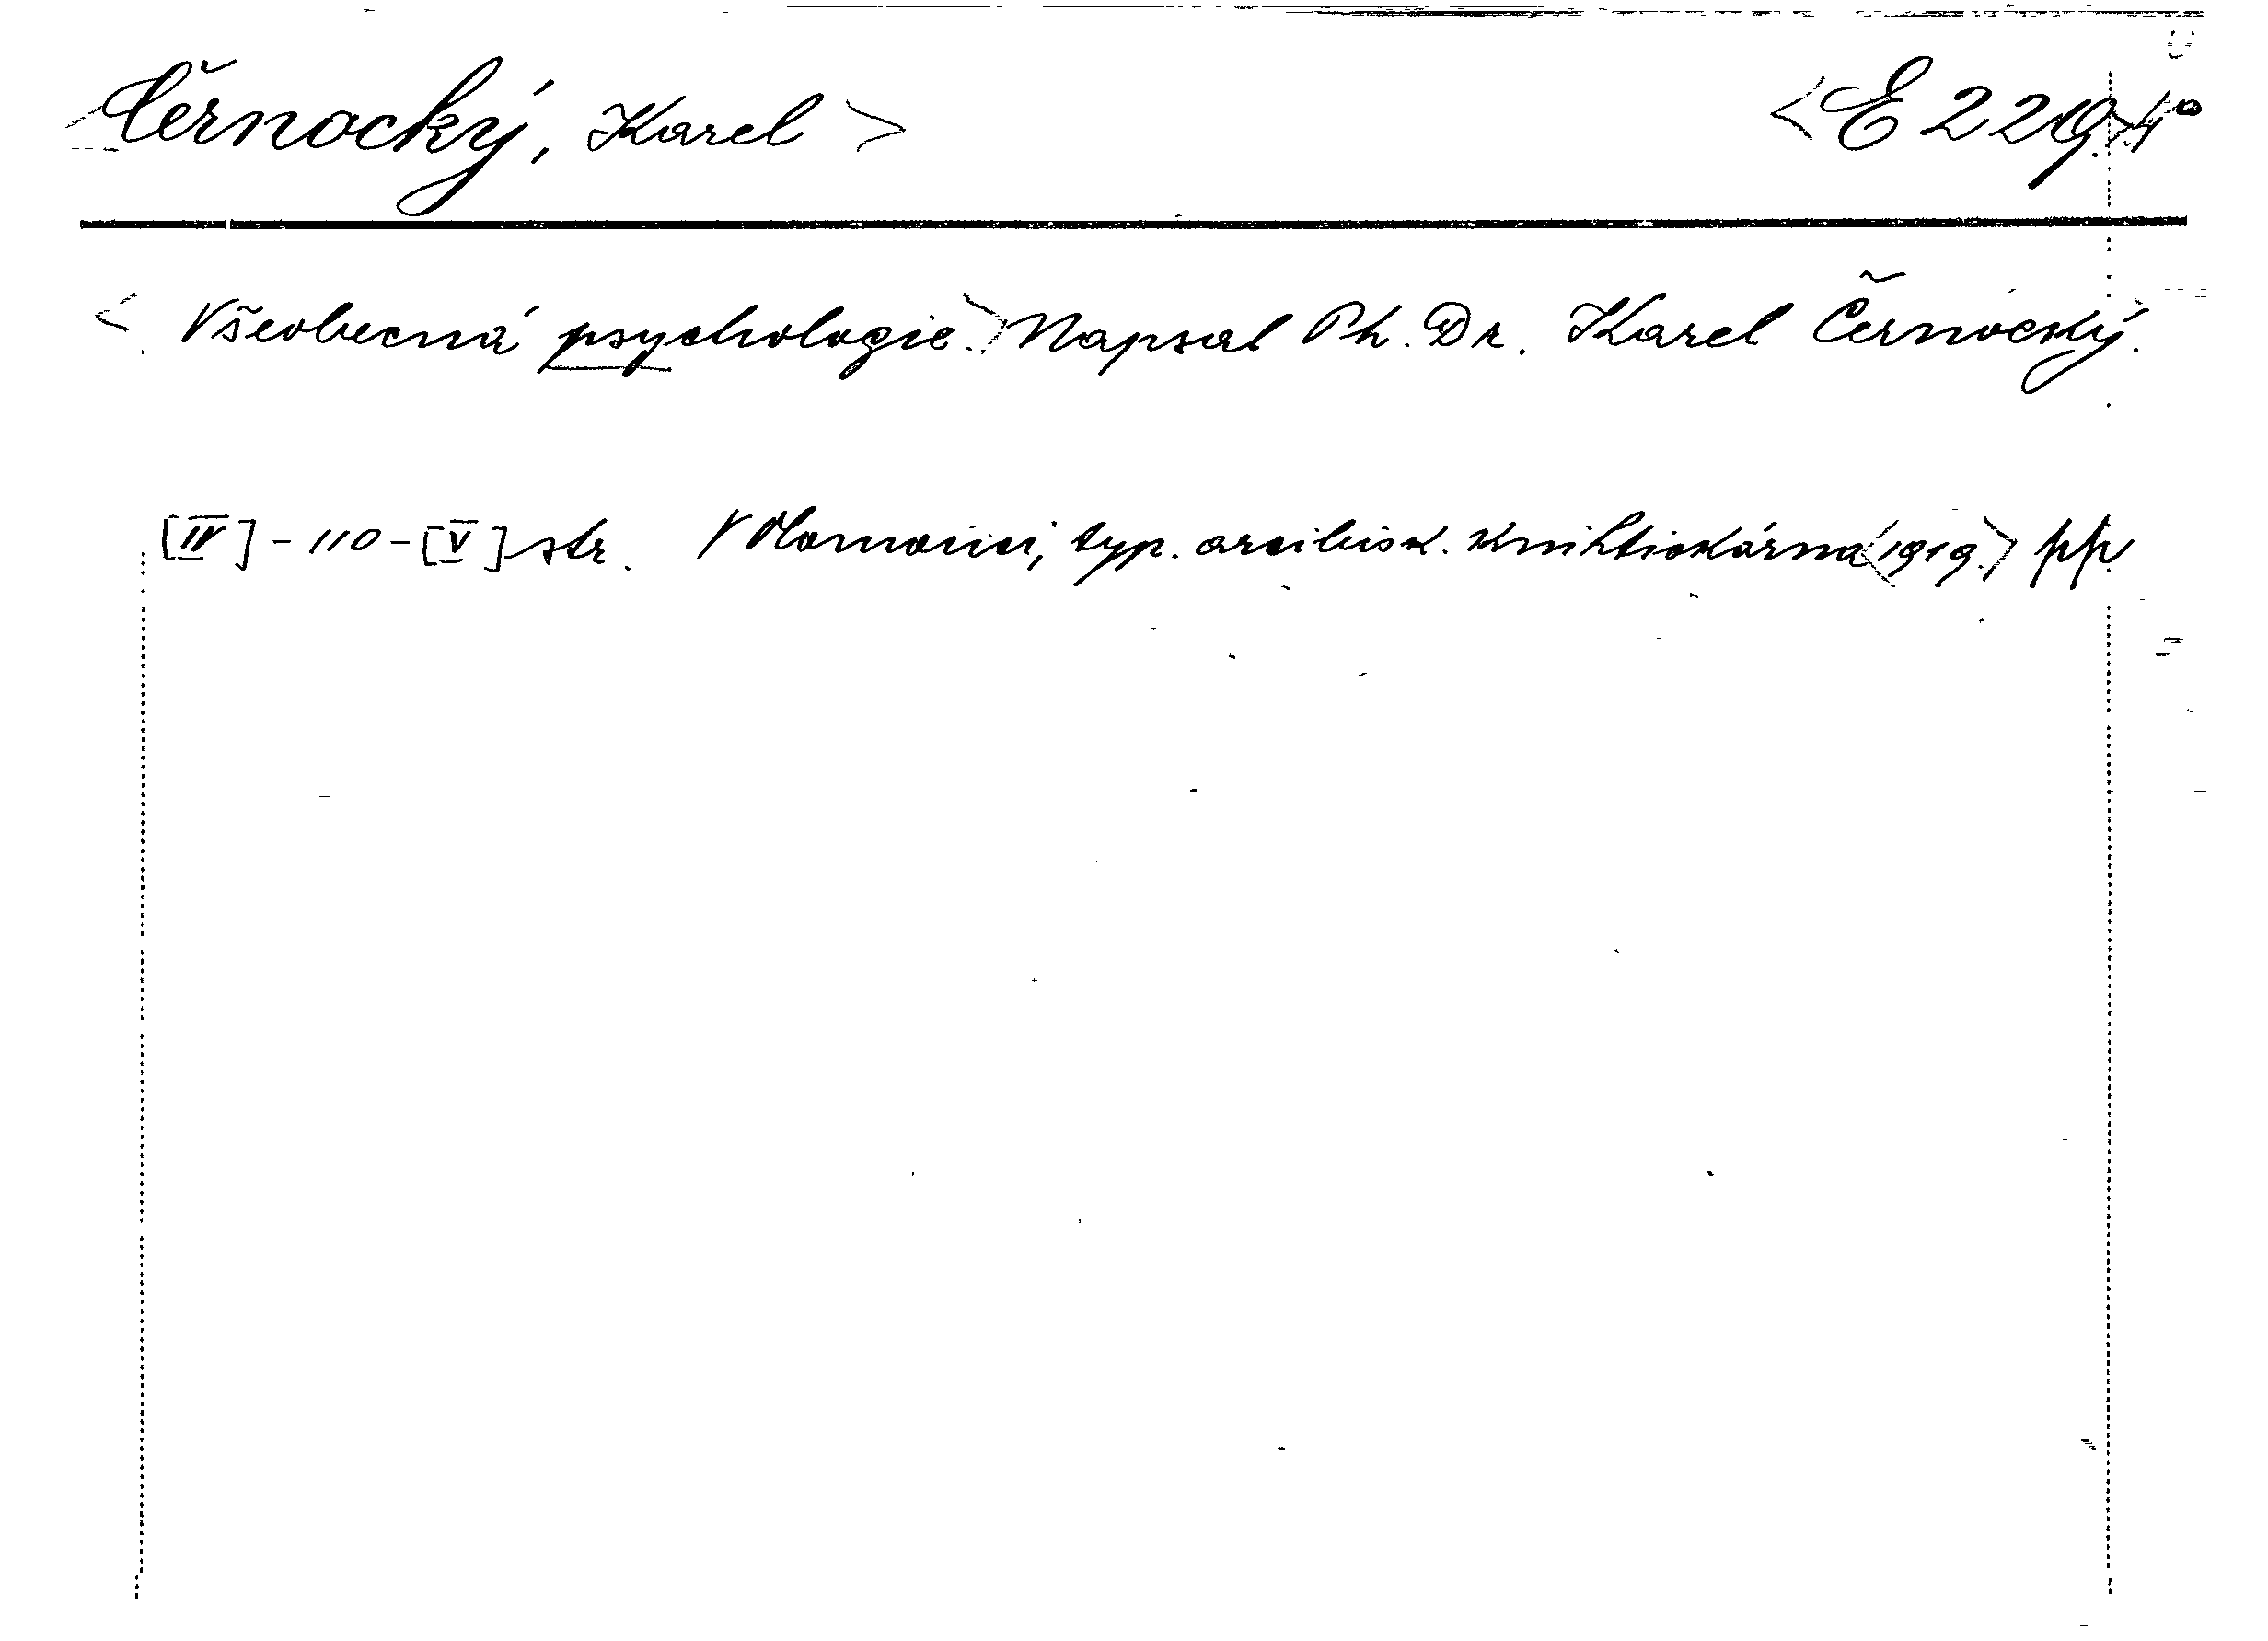 <Černocký, Karel> <E 229.>4°
<Všeobecná psychologie.> Napsal Ph. Dr. Karel Černocký.
[IV] - 110 - [V] str. V Olomouci, typ. arcibisk. knihtiskárna <1919.> pp